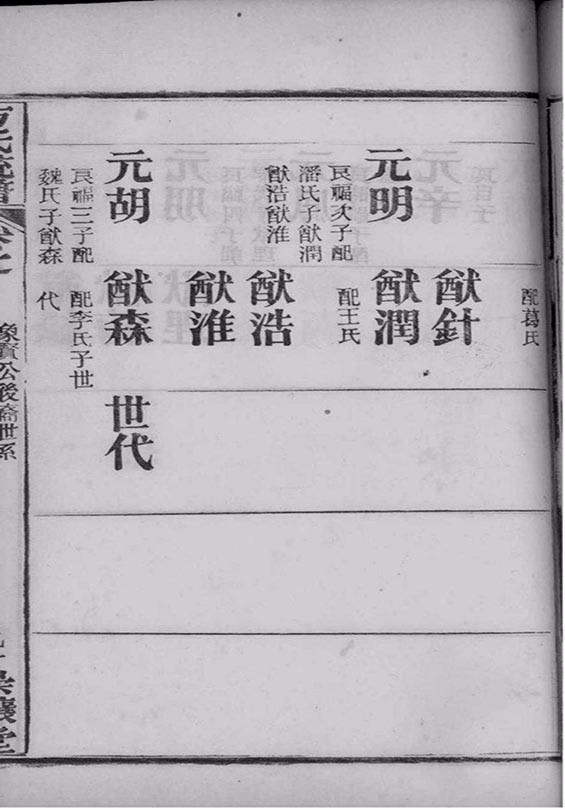 配葛氏
猷針
元明
良福次子配
潘氏子猷潤
猷浩猷淮
猷潤
配王氏
猷浩
猷淮
元胡
良福三子配
魏氏子猷森
猷森
配李氏子世
代
世代
氏統譜
公後裔世系
堂